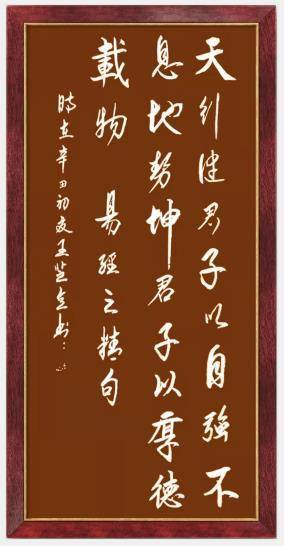 天行健君子以自強不
息地勢坤君子以厚德
載物 易經之精句
時在辛丑初夏王